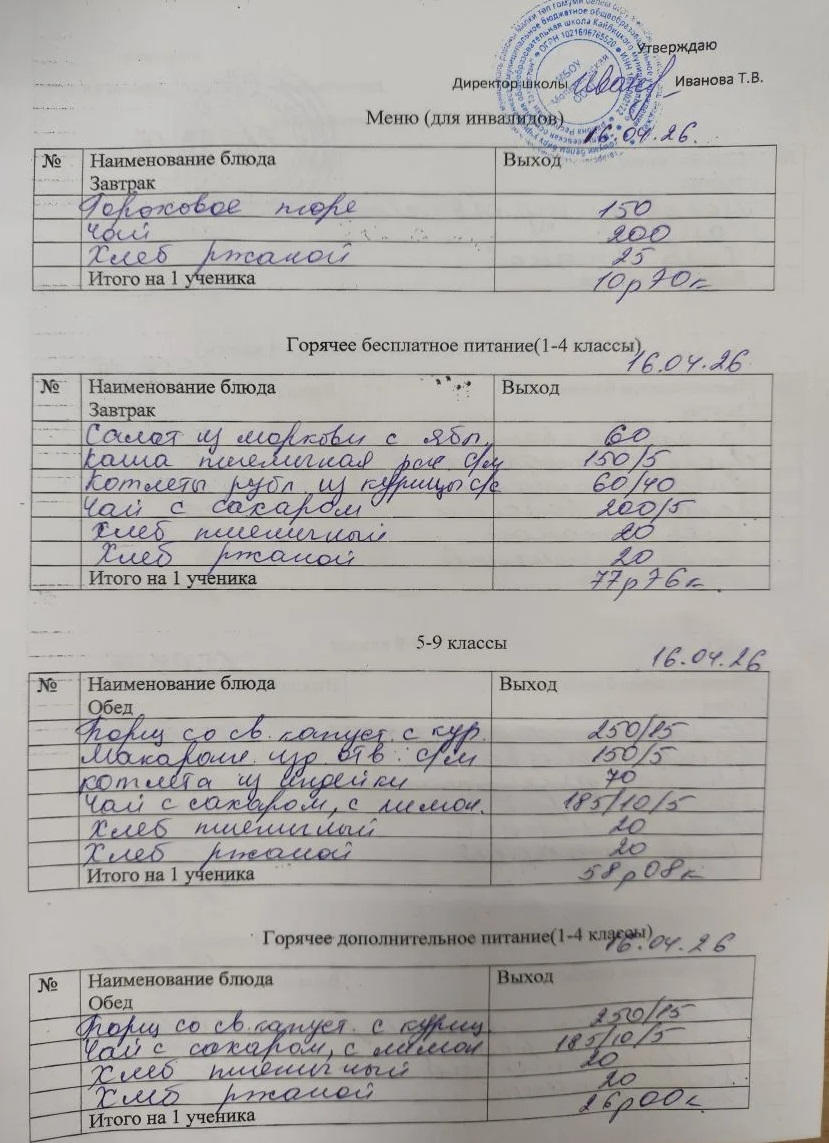 Утверждаю
Директор школы Иванова Т.В.
Меню (для инвалидов)
16.04.26.
№ Наименование блюда Выход
Завтрак
Гороховое пюре 150
Чай 200
Хлеб ржаной 25
Итого на 1 ученика 10р70к
Горячее бесплатное питание(1-4 классы)
16.04.26
№ Наименование блюда Выход
Завтрак
Салат из моркови с ябл. 60
Каша пшеничная рас с/м 150/5
Котлеты рубл из курицы с/с 60/40
Чай с сахаром 200/5
Хлеб пшеничный 20
Хлеб ржаной 20
Итого на 1 ученика 77р76к.
5-9 классы
16.04.26
№ Наименование блюда Выход
Обед
Борщ со св. капуст. с кур. 250/15
Макарон. изд. отв. с/м 150/5
котлета из индейки 70
Чай с сахаром, с лимон. 185/10/5
Хлеб пшеничный 20
Хлеб ржаной 20
Итого на 1 ученика 58р08к
Горячее дополнительное питание(1-4 классы)
16.04.26
№ Наименование блюда Выход
Обед
Борщ со св. капуст. с куриц 250/15
Чай с сахаром, с лимон 185/10/5
Хлеб пшеничный 20
Хлеб ржаной 20
Итого на 1 ученика 26р00к.